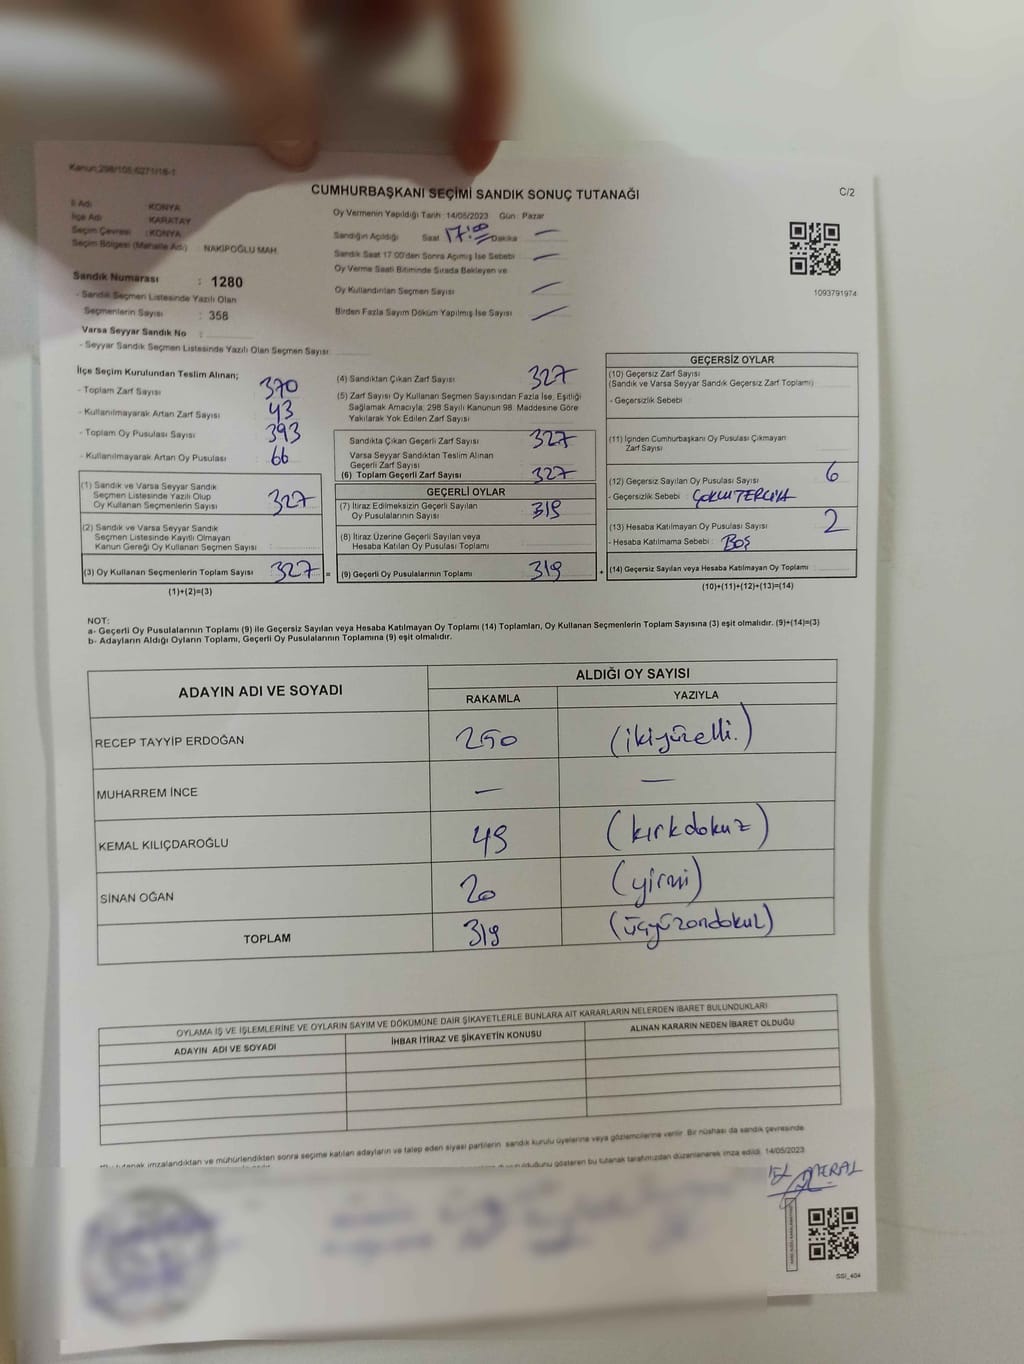 Kanun:298/105;6271/16-1
CUMHURBAŞKANI SEÇİMİ SANDIK SONUÇ TUTANAĞI
C/2
İl Adı : KONYA
İlçe Adı : KARATAY
Seçim Çevresi : KONYA
Seçim Bölgesi (Mahalle Adı) : NAKİPOĞLU MAH.
Sandık Numarası : 1280
- Sandık Seçmen Listesinde Yazılı Olan
Seçmenlerin Sayısı : 358
Varsa Seyyar Sandık No :
- Seyyar Sandık Seçmen Listesinde Yazılı Olan Seçmen Sayısı:
Oy Vermenin Yapıldığı Tarih :14/05/2023 Gün : Pazar
Sandığın Açıldığı Saat 17:00 Dakika —
Sandık Saat 17:00'den Sonra Açılmış İse Sebebi —
Oy Verme Saati Bitiminde Sırada Bekleyen ve
Oy Kullandırılan Seçmen Sayısı —
Birden Fazla Sayım Döküm Yapılmış İse Sayısı —
1093791974
İlçe Seçim Kurulundan Teslim Alınan;
- Toplam Zarf Sayısı 370
- Kullanılmayarak Artan Zarf Sayısı 43
- Toplam Oy Pusulası Sayısı 393
- Kullanılmayarak Artan Oy Pusulası 66
(1) Sandık ve Varsa Seyyar Sandık
Seçmen Listesinde Yazılı Olup
Oy Kullanan Seçmenlerin Sayısı 327
(2) Sandık ve Varsa Seyyar Sandık
Seçmen Listesinde Kayıtlı Olmayan
Kanun Gereği Oy Kullanan Seçmen Sayısı
(3) Oy Kullanan Seçmenlerin Toplam Sayısı 327 =
(1)+(2)=(3)
(4) Sandıktan Çıkan Zarf Sayısı 327
(5) Zarf Sayısı Oy Kullanan Seçmen Sayısından Fazla İse, Eşitliği
Sağlamak Amacıyla, 298 Sayılı Kanunun 98. Maddesine Göre
Yakılarak Yok Edilen Zarf Sayısı
Sandıkta Çıkan Geçerli Zarf Sayısı 327
Varsa Seyyar Sandıktan Teslim Alınan
Geçerli Zarf Sayısı
(6) Toplam Geçerli Zarf Sayısı 327
GEÇERLİ OYLAR
(7) İtiraz Edilmeksizin Geçerli Sayılan
Oy Pusulalarının Sayısı 319
(8) İtiraz Üzerine Geçerli Sayılan veya
Hesaba Katılan Oy Pusulası Toplamı
(9) Geçerli Oy Pusulalarının Toplamı 319 +
GEÇERSİZ OYLAR
(10) Geçersiz Zarf Sayısı
(Sandık ve Varsa Seyyar Sandık Geçersiz Zarf Toplamı)
- Geçersizlik Sebebi
(11) İçinden Cumhurbaşkanı Oy Pusulası Çıkmayan
Zarf Sayısı
(12) Geçersiz Sayılan Oy Pusulası Sayısı 6
- Geçersizlik Sebebi ÇOKLU TERCİH
(13) Hesaba Katılmayan Oy Pusulası Sayısı 2
- Hesaba Katılmama Sebebi : BOŞ
(14) Geçersiz Sayılan veya Hesaba Katılmayan Oy Toplamı
(10)+(11)+(12)+(13)=(14)
NOT:
a- Geçerli Oy Pusulalarının Toplamı (9) ile Geçersiz Sayılan veya Hesaba Katılmayan Oy Toplamı (14) Toplamları, Oy Kullanan Seçmenlerin Toplam Sayısına (3) eşit olmalıdır. (9)+(14)=(3)
b- Adayların Aldığı Oyların Toplamı, Geçerli Oy Pusulalarının Toplamına (9) eşit olmalıdır.
ADAYIN ADI VE SOYADI
ALDIĞI OY SAYISI
RAKAMLA YAZIYLA
RECEP TAYYİP ERDOĞAN 250 (ikiyüzelli.)
MUHARREM İNCE — —
KEMAL KILIÇDAROĞLU 49 (kırkdokuz)
SİNAN OĞAN 20 (yirmi)
TOPLAM 319 (üçyüzondokuz)
OYLAMA İŞ VE İŞLEMLERİNE VE OYLARIN SAYIM VE DÖKÜMÜNE DAİR ŞİKAYETLERLE BUNLARA AİT KARARLARIN NELERDEN İBARET BULUNDUKLARI
ADAYIN ADI VE SOYADI İHBAR İTİRAZ VE ŞİKAYETİN KONUSU ALINAN KARARIN NEDEN İBARET OLDUĞU
tutanak imzalandıktan ve mühürlendikten sonra seçime katılan adayların ve talep eden siyasi partilerin sandık kurulu üyelerine veya gözlemcilerine verilir. Bir nüshası da sandık çevresinde
olduğunu gösteren bu tutanak tarafımızdan düzenlenerek imza edildi. 14/05/2023
MERAL
SSI_404